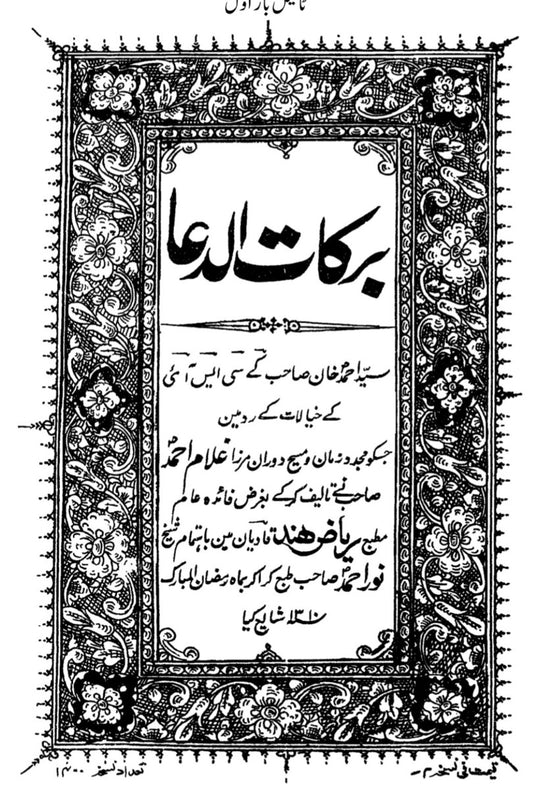 ٹائیٹل بار اول
برکات الدعا
سید احمد خان صاحب کے سی ایس آئی
کے خیالات کے رد مین
جسکو مجدد زمان و مسیح دوران مرزا غلام احمد
صاحب نے تالیف کر کے بغرض فائدہ عالم
مطبع ریاض ہند قادیان مین باہتمام شیخ
نور احمد صاحب طبع کرا کر بماہ رمضان المبارک
۱۳۱۰ شایع کیا
قیمت فی نسخہ
تعداد نسخہ